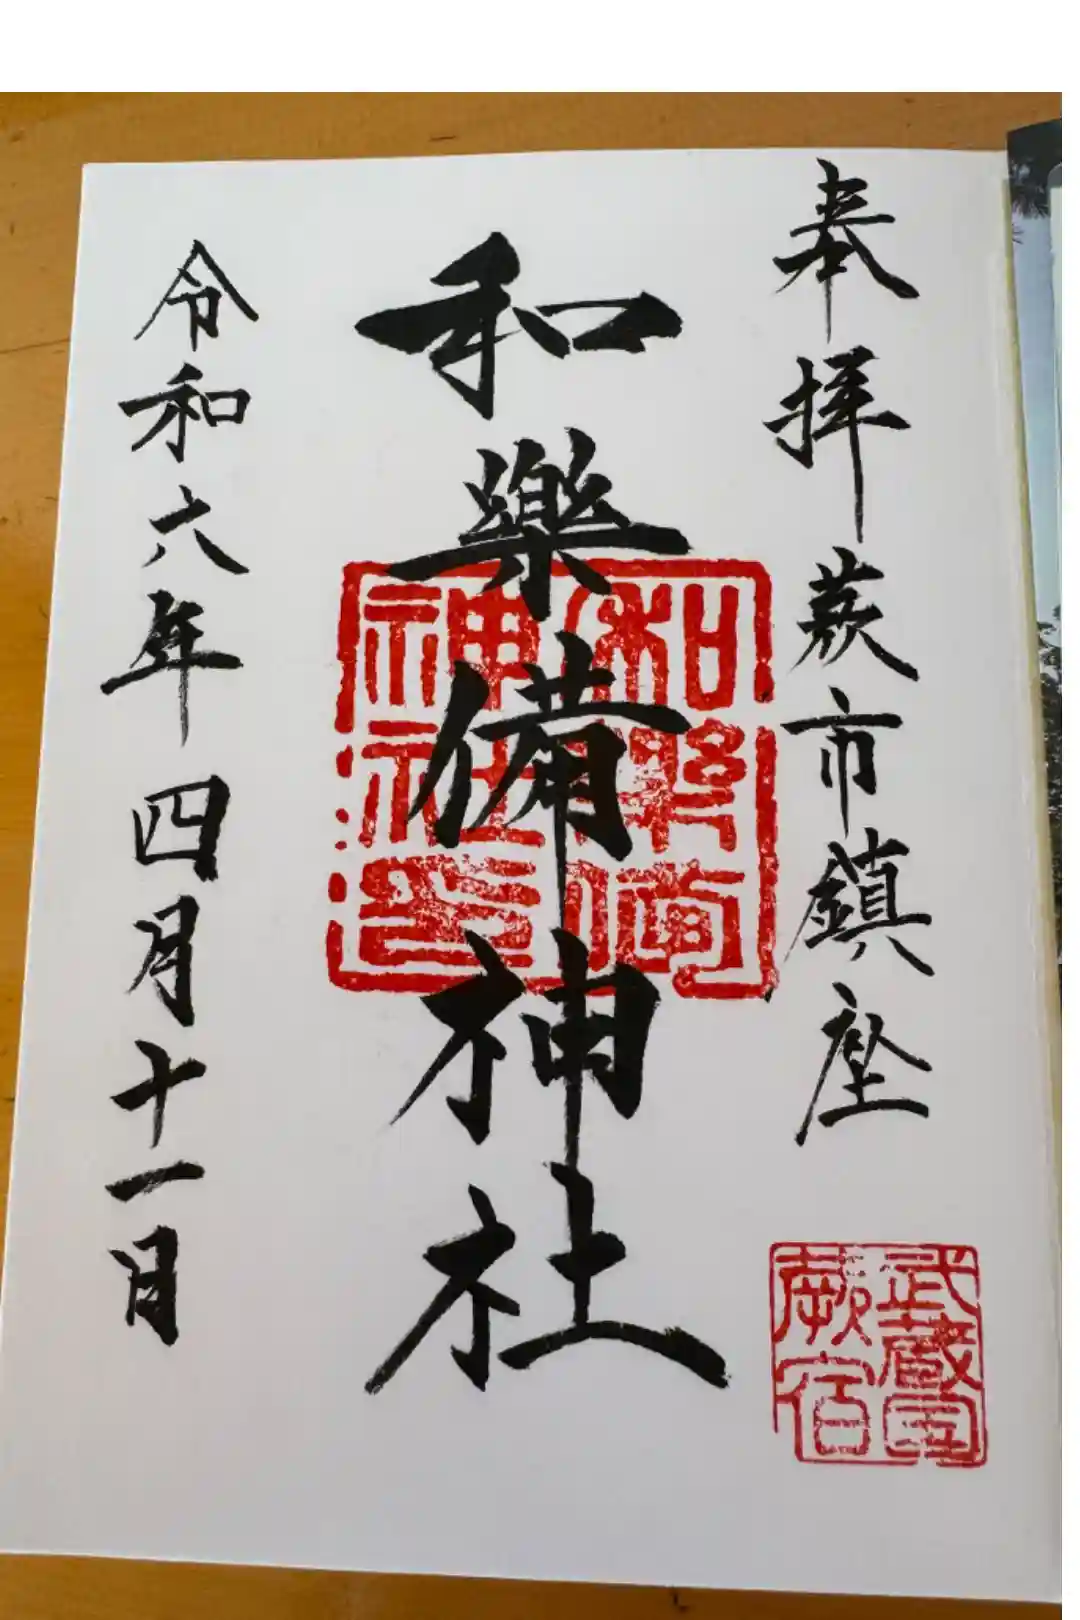 奉拝 蕨市鎮座
和樂備神社
令和六年四月十一日
和樂備
神社印
武蔵国
蕨宿